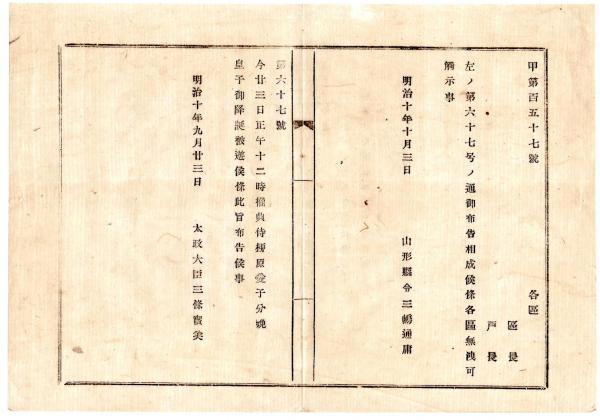 甲第百五十七號
各區
區長
戸長
左ノ第六十七号ノ通御布告相成候條各區無洩可
觸示事
明治十年十月三日
山形縣令三嶋通庸
第六十七號
今廿三日正午十二時權典侍柳原愛子分娩
皇子御降誕被遊候條此旨布告候事
明治十年九月廿三日
太政大臣三條實美